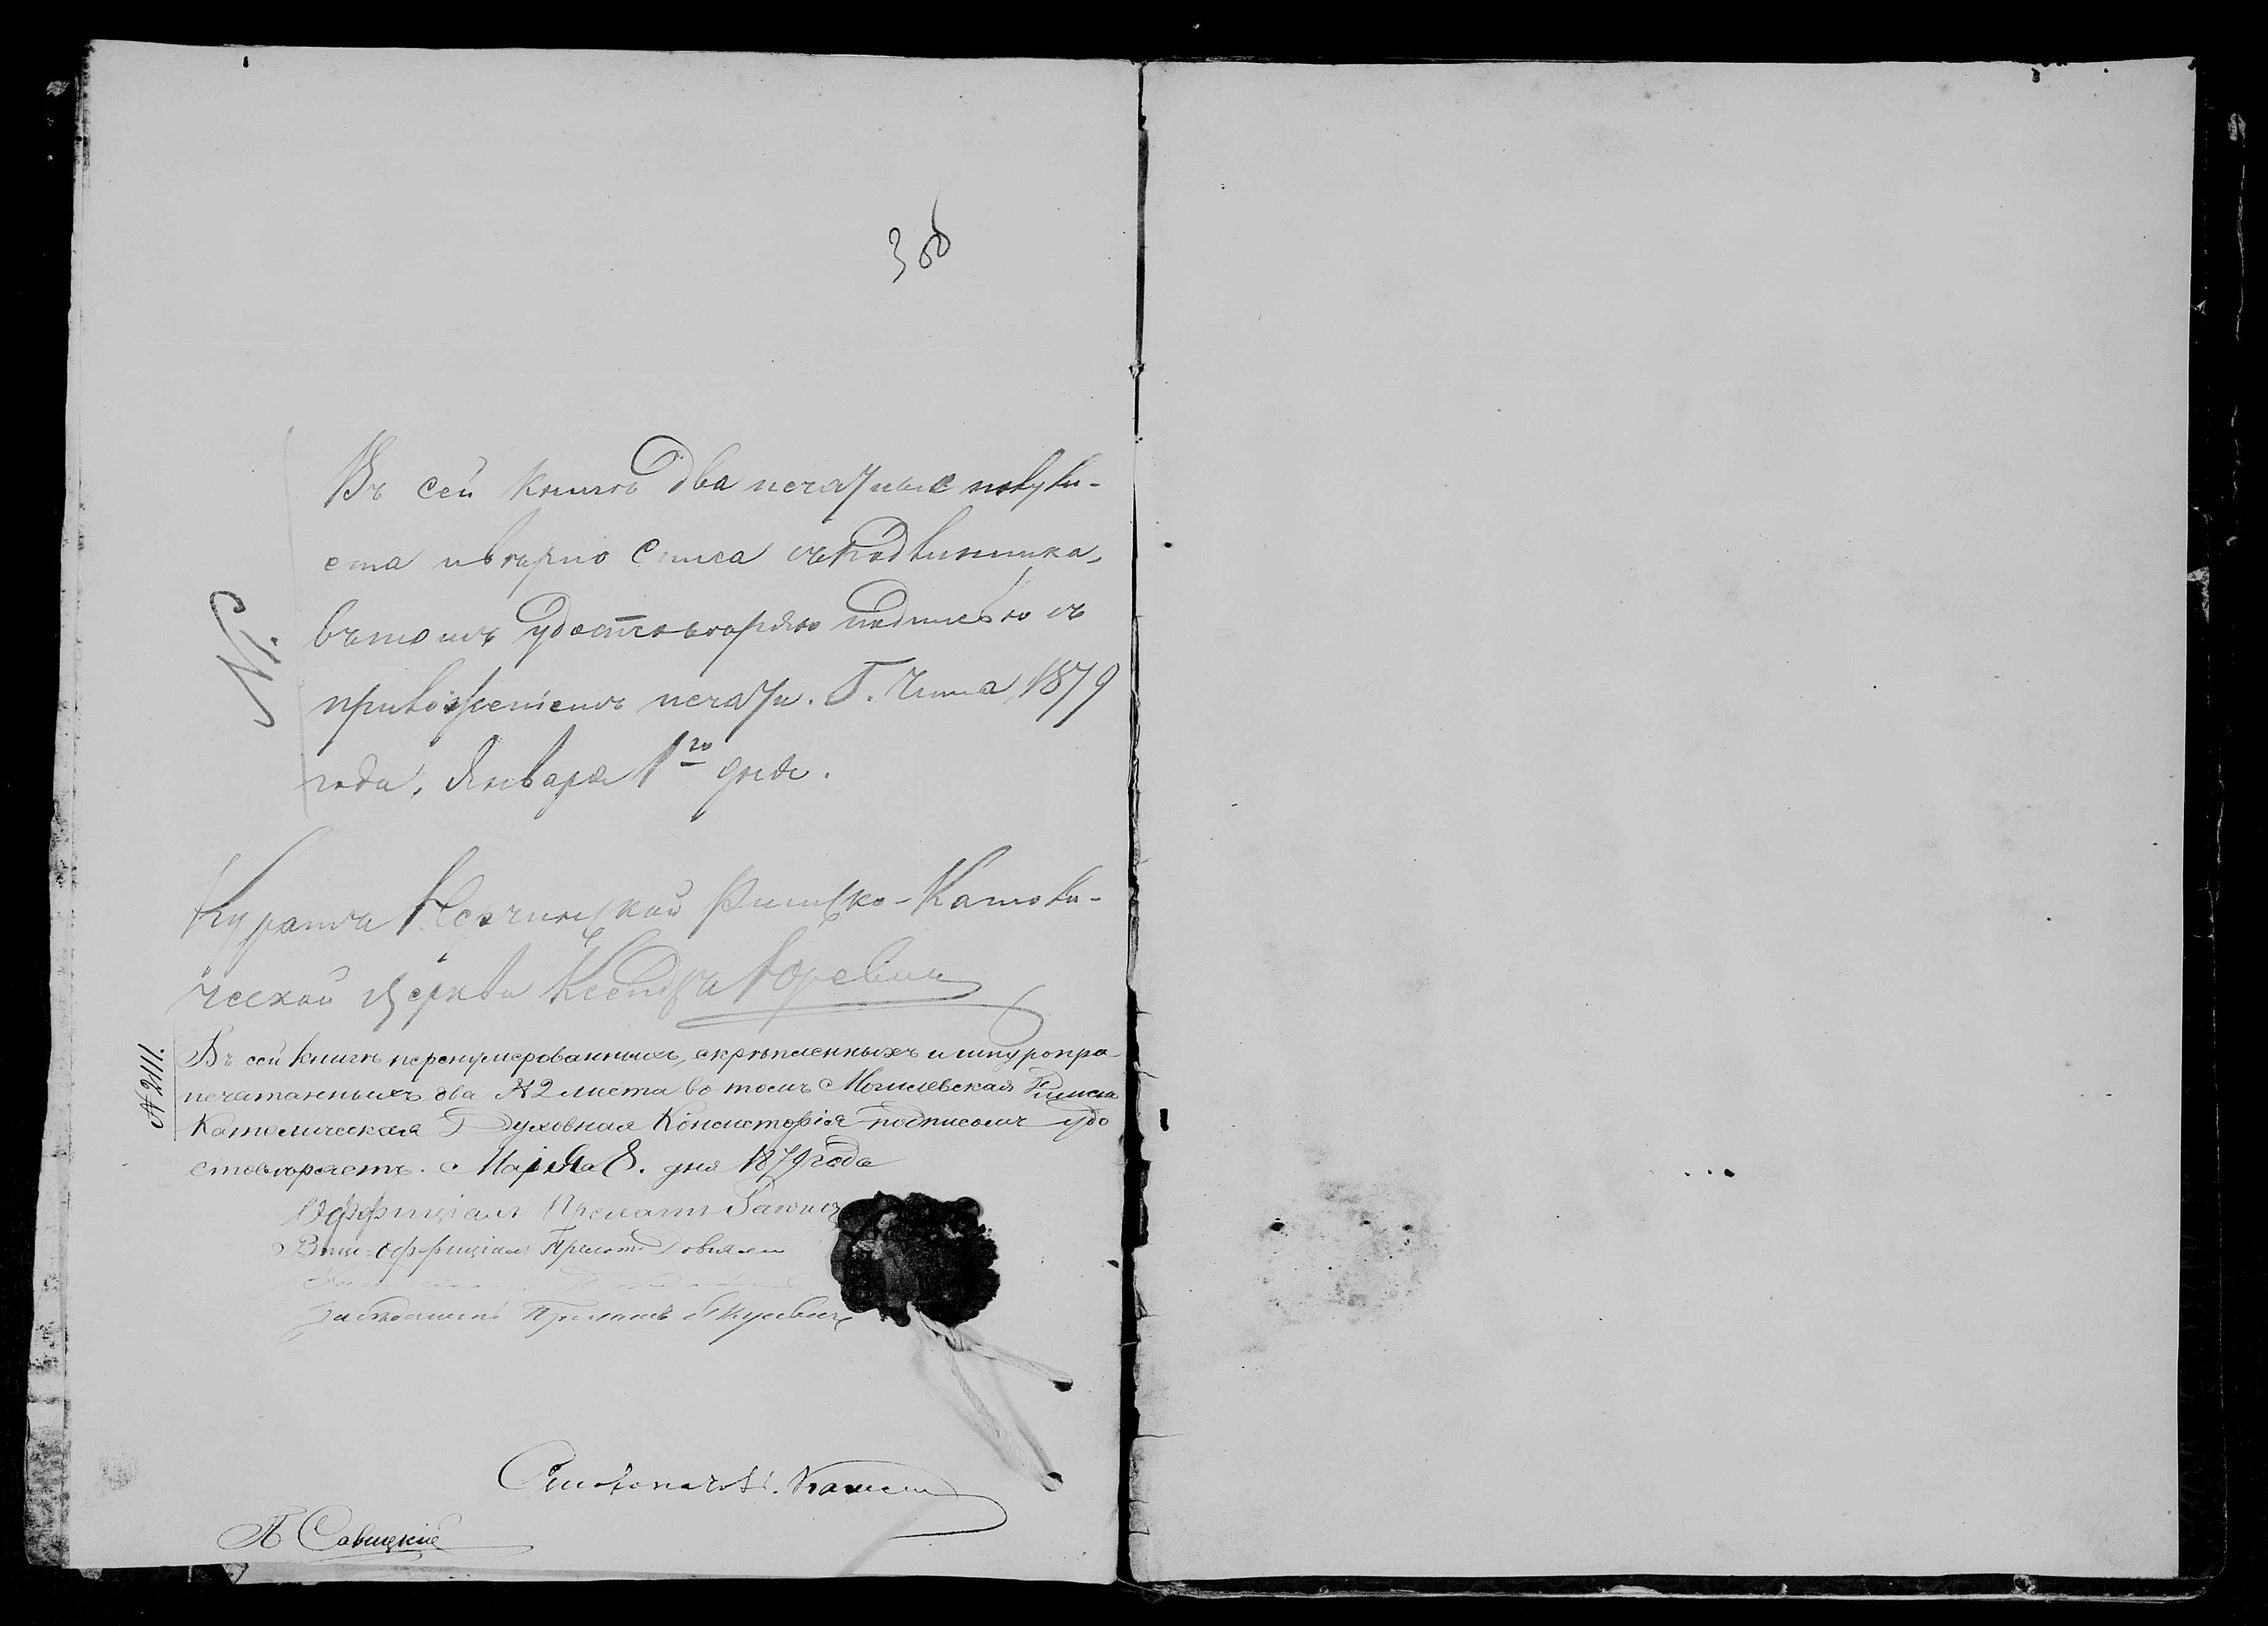 3 об
№.
Въ сей книгѣ два печатные полули-
ста и вѣрно съ подлинника,
въ томъ удостовѣряю подписью съ
приложеніемъ печати. Г. Чита, 1879
года, Января 1го дня.
Куратъ Нерчинской Римско-Католи-
ческой Церкви Ксендзъ Юревичъ
№ 2111.
Въ сей книгѣ перенумерованныхъ, скрѣпленныхъ и шнуропро
печатанныхъ два № 2 листа во томъ Могилевская Римско
Католическая Духовная Консисторія подписомъ удо
стовѣряетъ. Марта 8. дня 1879 года
Оффиціалъ Прелатъ
Вице-Оффиціалъ Прелатъ Довгялло
Засѣдатель Прелатъ
Столоначал.
П Савицкій